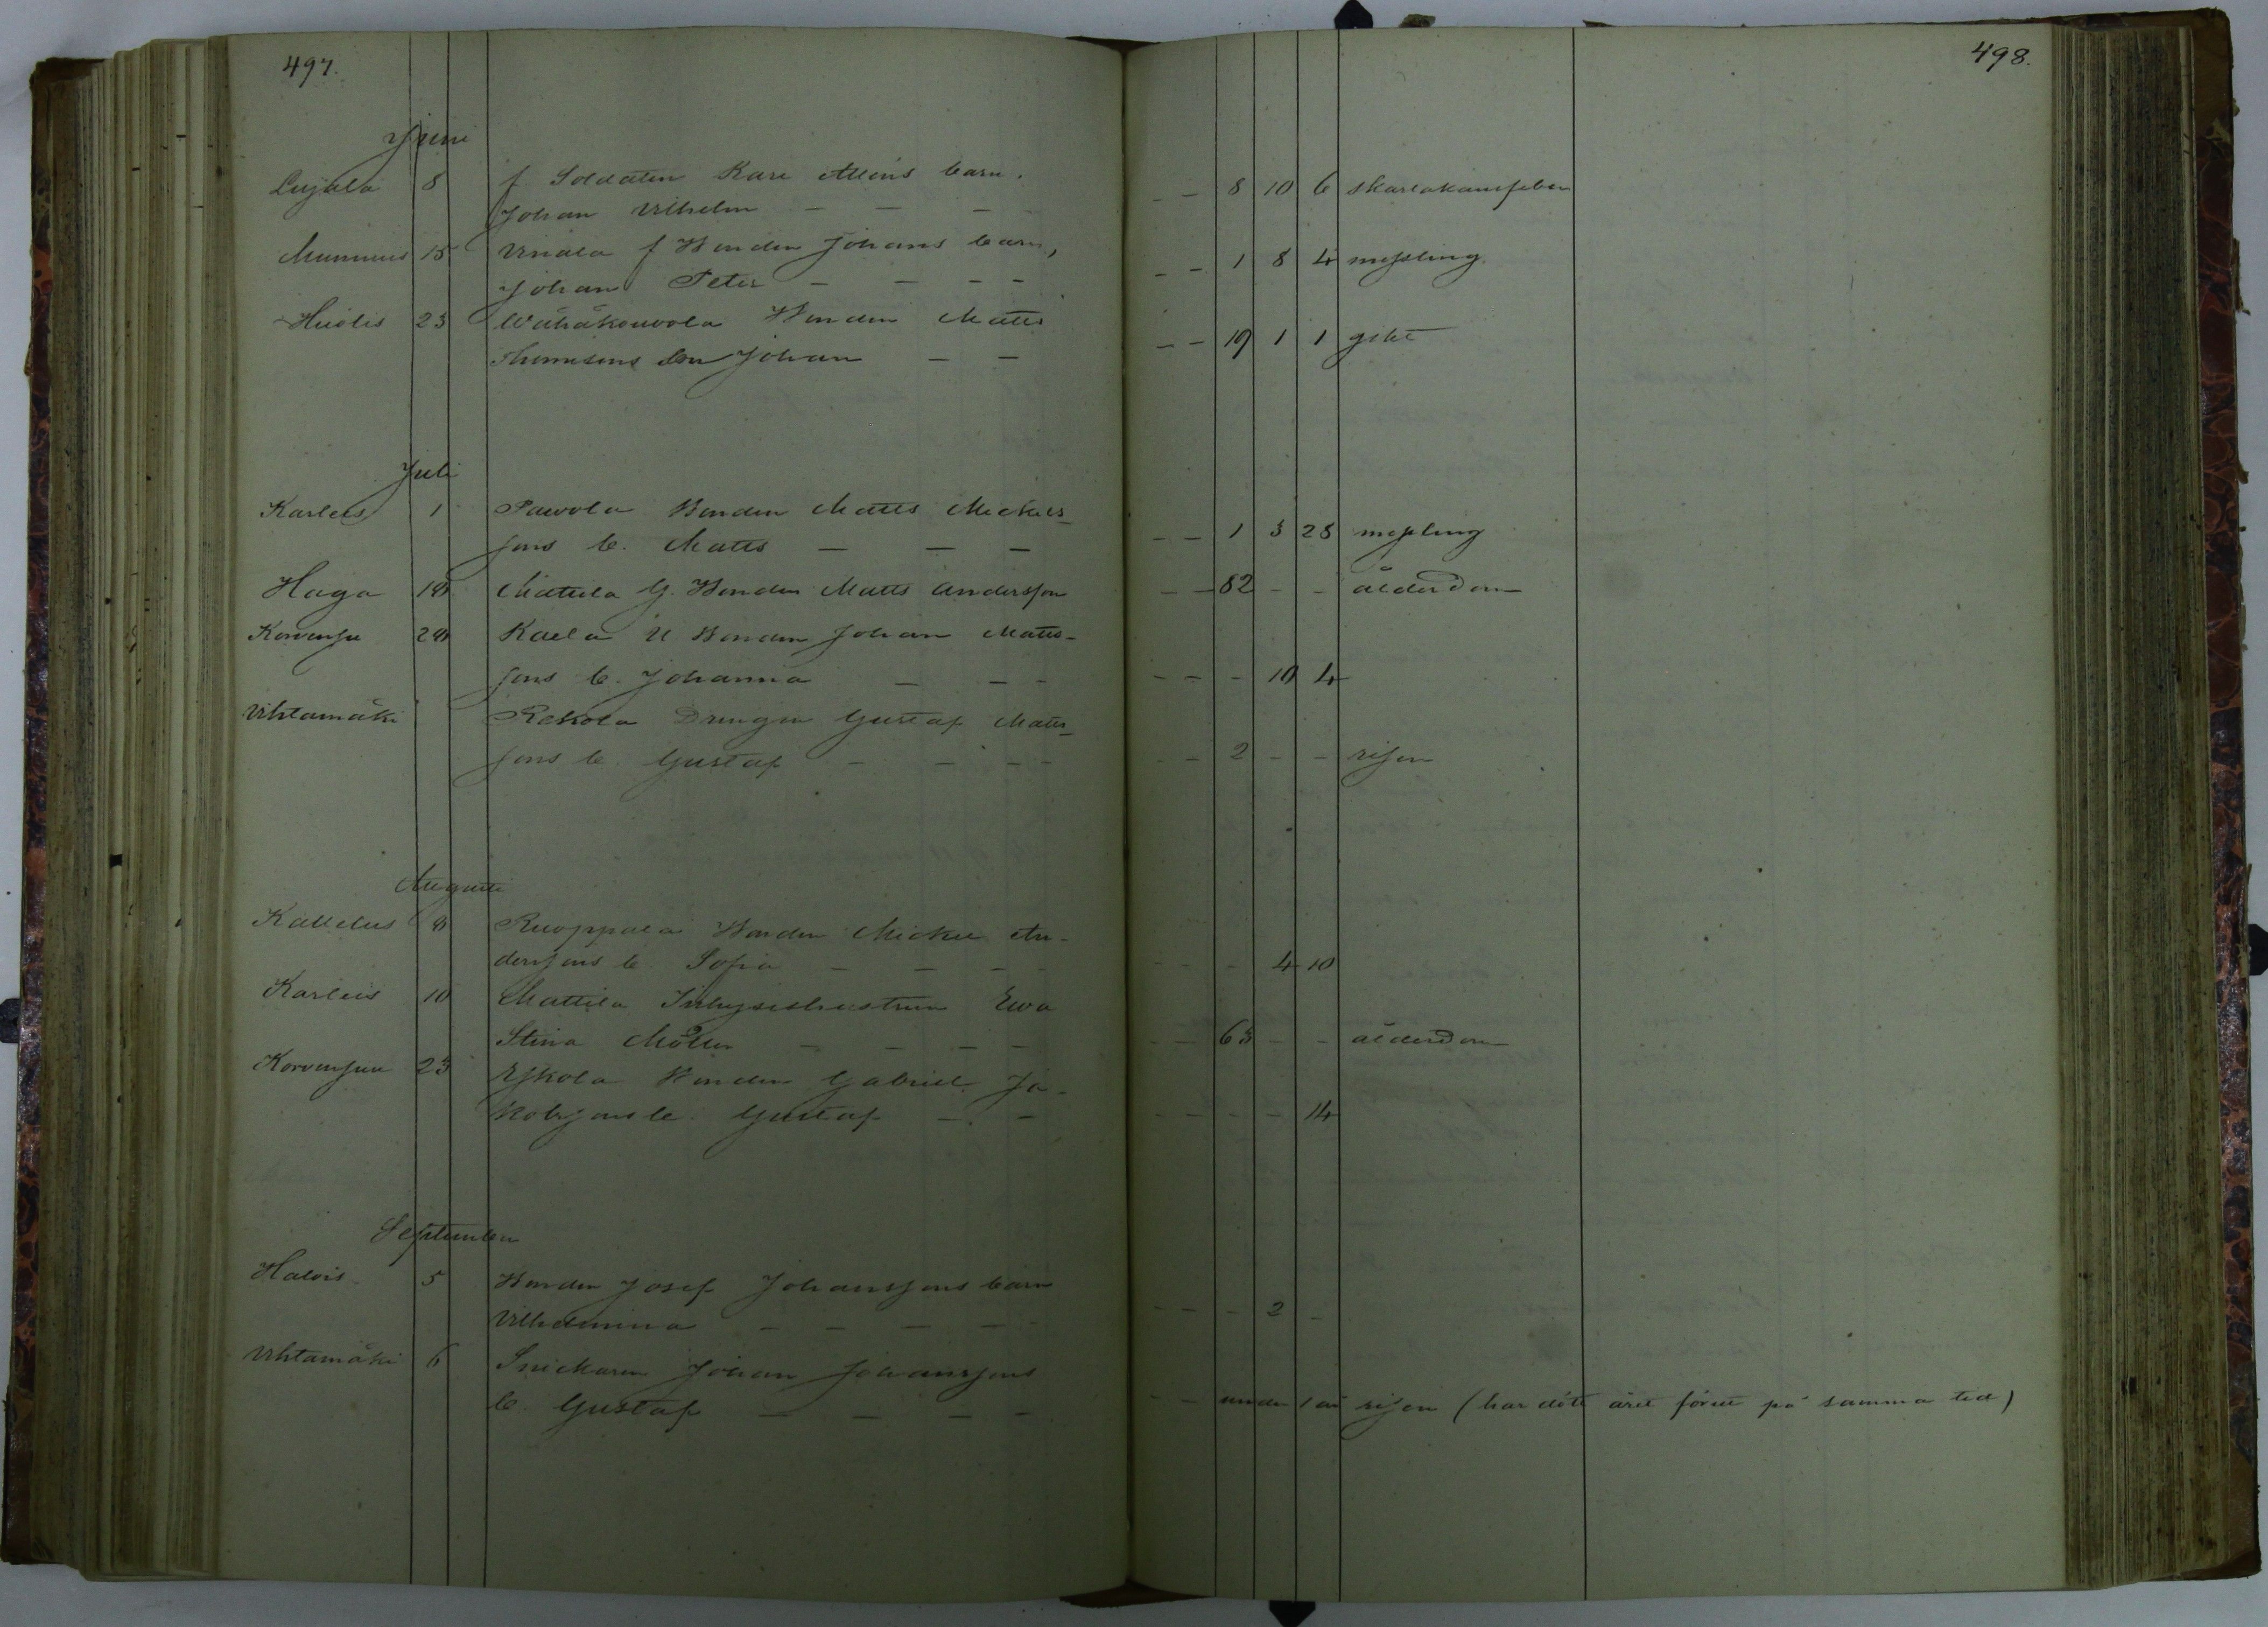 497.
498.
Juni
Lujala 8 f. Soldaten Karl Aléns barn.
Johan Vilhelm — — — — — 8 10 6 skarlakansfeber
Mummis 15 Vinala f Bonden Johans barn,
Johan Peter — — — — — — 1 8 4 messling
Hidis 23 Wähäkouvola Bonden Matts
Thomssons Son Johan — — — — 19 1 1 gikt
Juli
Karleis 1 Pawola Bonden Matts Mickels-
sons b. Matts — — — — — 1 3 28 messling
Haga 18 Mattila G. Bonden Matts Andersson — — 82 — — ålderdom
Korvensu 28 Kaela U Bonden Johan Matts-
sons b. Johanna — — — — — — 10 4
Vihtamäki Reskola Drengen Gustaf Matts-
sons b. Gustaf — — — — — 2 — — risen
Augusti
Kallelus 8 Ruoppala Bonden Mickel An-
derssons b Sofia — — — — — — 4 10
Karleis 10 Mattila Inhyseshustrun Ewa
Stina Möller — — — — — — 63 — — ålderdom
Korvensuu 23 Eskola Bonden Gabriel Ja-
kobssons b. Gustaf — — — — — — 14
September
Halvis 5 Bonden Josef Johanssons barn
Vilhelmina — — — — — — — 2 —
Vihtamäki 6 Snickaren Johan Johanssons
b. Gustaf — — — — — — under 1 år risen (har dött året förut på samma tid)